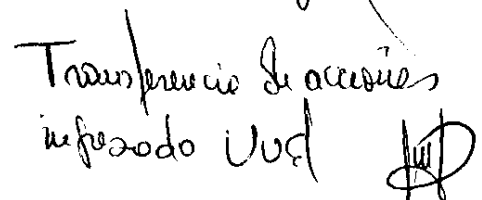 Transferencia de acciones
ingresado